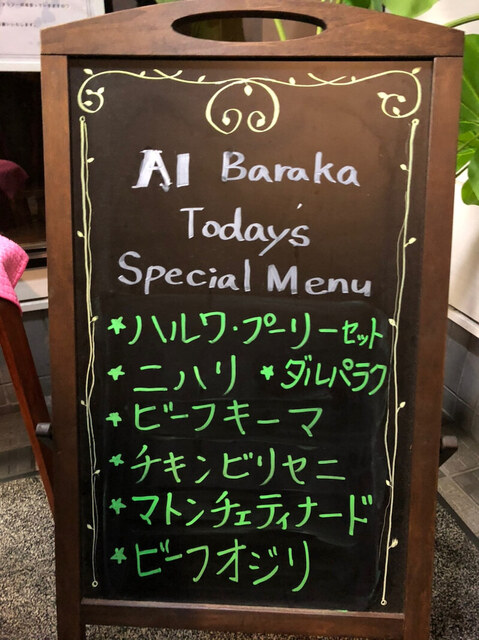 Al Baraka
Today's
Special Menu
★ハルワ・プーリーセット
★ニハリ ★ダルパラク
★ビーフキーマ
★チキンビリセニ
★マトンチェティナード
★ビーフオジリ